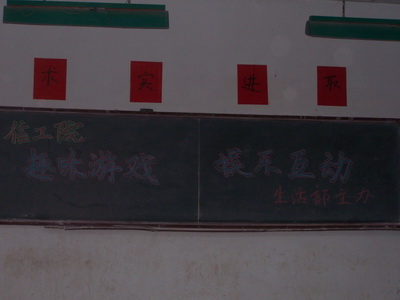 求 实 进 取
信工院
趣味游戏 娱乐互动
生活部主办